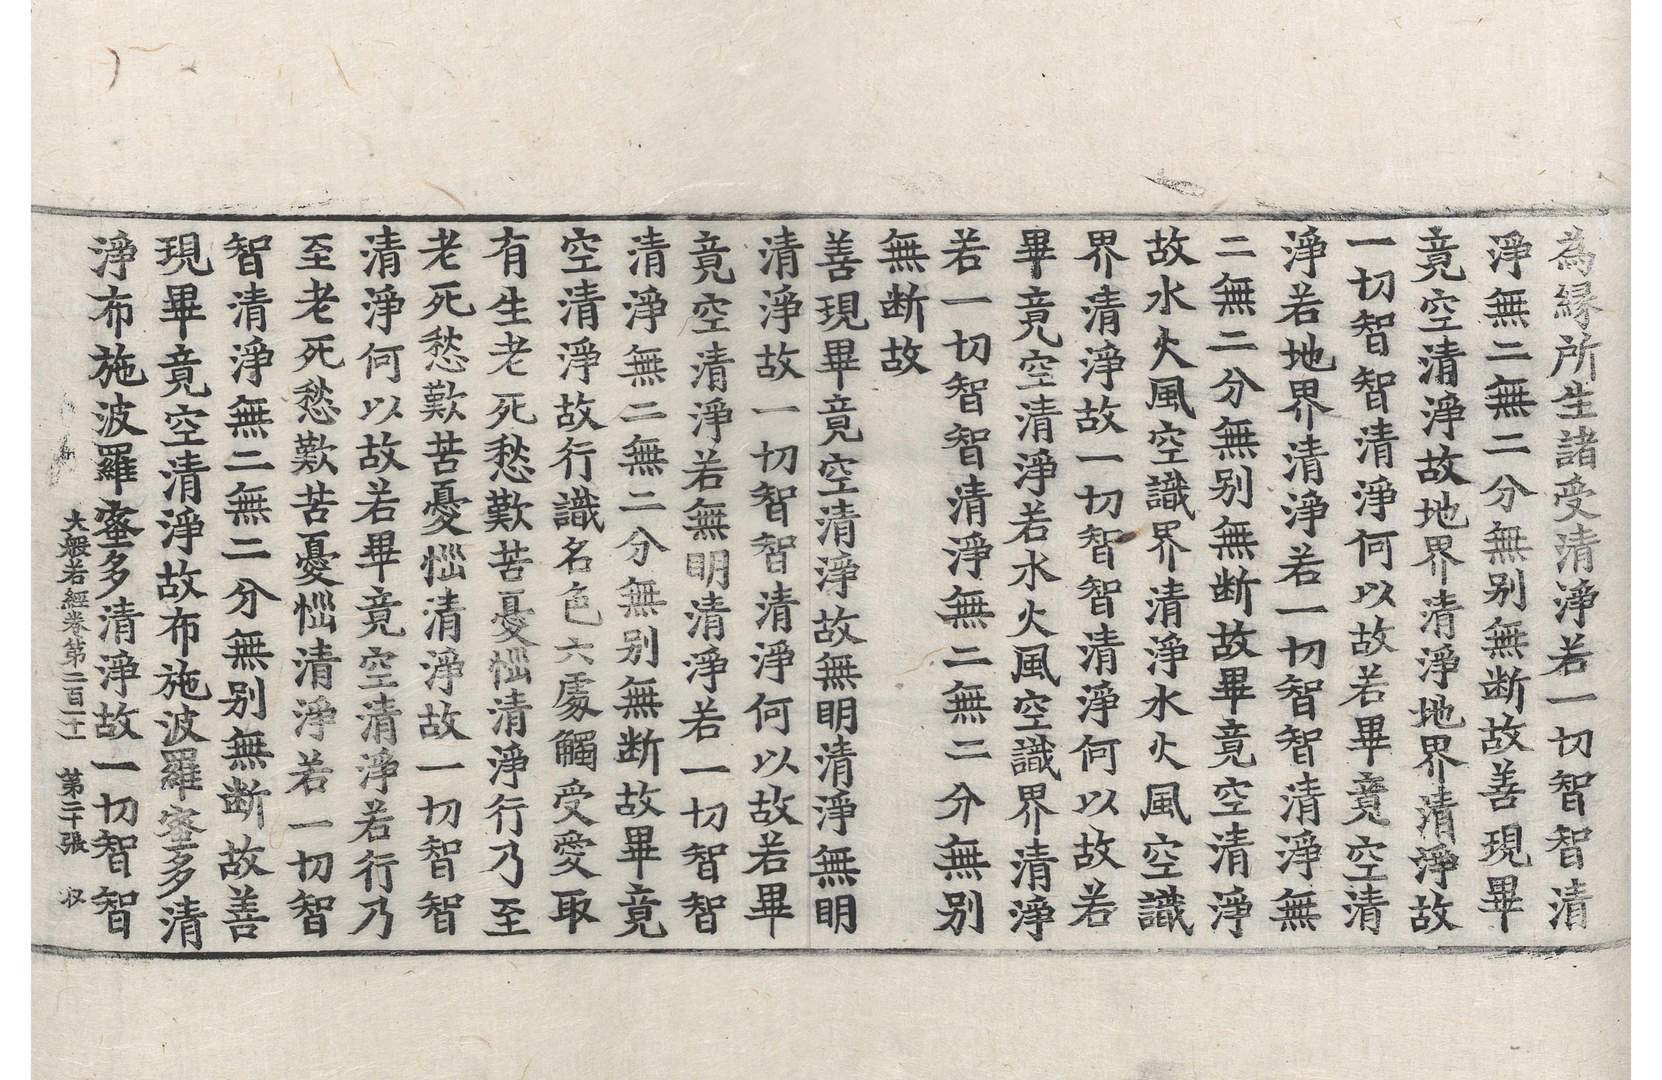 為緣所生諸受清淨若一切智智清
淨無二無二分無别無断故善現畢
竟空清淨故地界清淨地界清淨故
一切智智清淨何以故若畢竟空清
淨若地界清淨若一切智智清淨無
二無二分無别無断故畢竟空清淨
故水火風空識界清淨水火風空識
界清淨故一切智智清淨何以故若
畢竟空清淨若水火風空識界清淨
若一切智智清淨無二無二分無别
無断故
善現畢竟空清淨故無明清淨無明
清淨故一切智智清淨何以故若畢
竟空清淨若無明清淨若一切智智
清淨無二無二分無别無断故畢竟
空清淨故行識名色六處觸受愛取
有生老死愁歎苦憂惱清淨行乃至
老死愁歎苦憂惱清淨故一切智智
清淨何以故若畢竟空清淨若行乃
至老死愁歎苦憂惱清淨若一切智
智清淨無二無二分無别無断故善
現畢竟空清淨故布施波羅蜜多清
淨布施波羅蜜多清淨故一切智智
大般若經卷第二百 第二十張 收